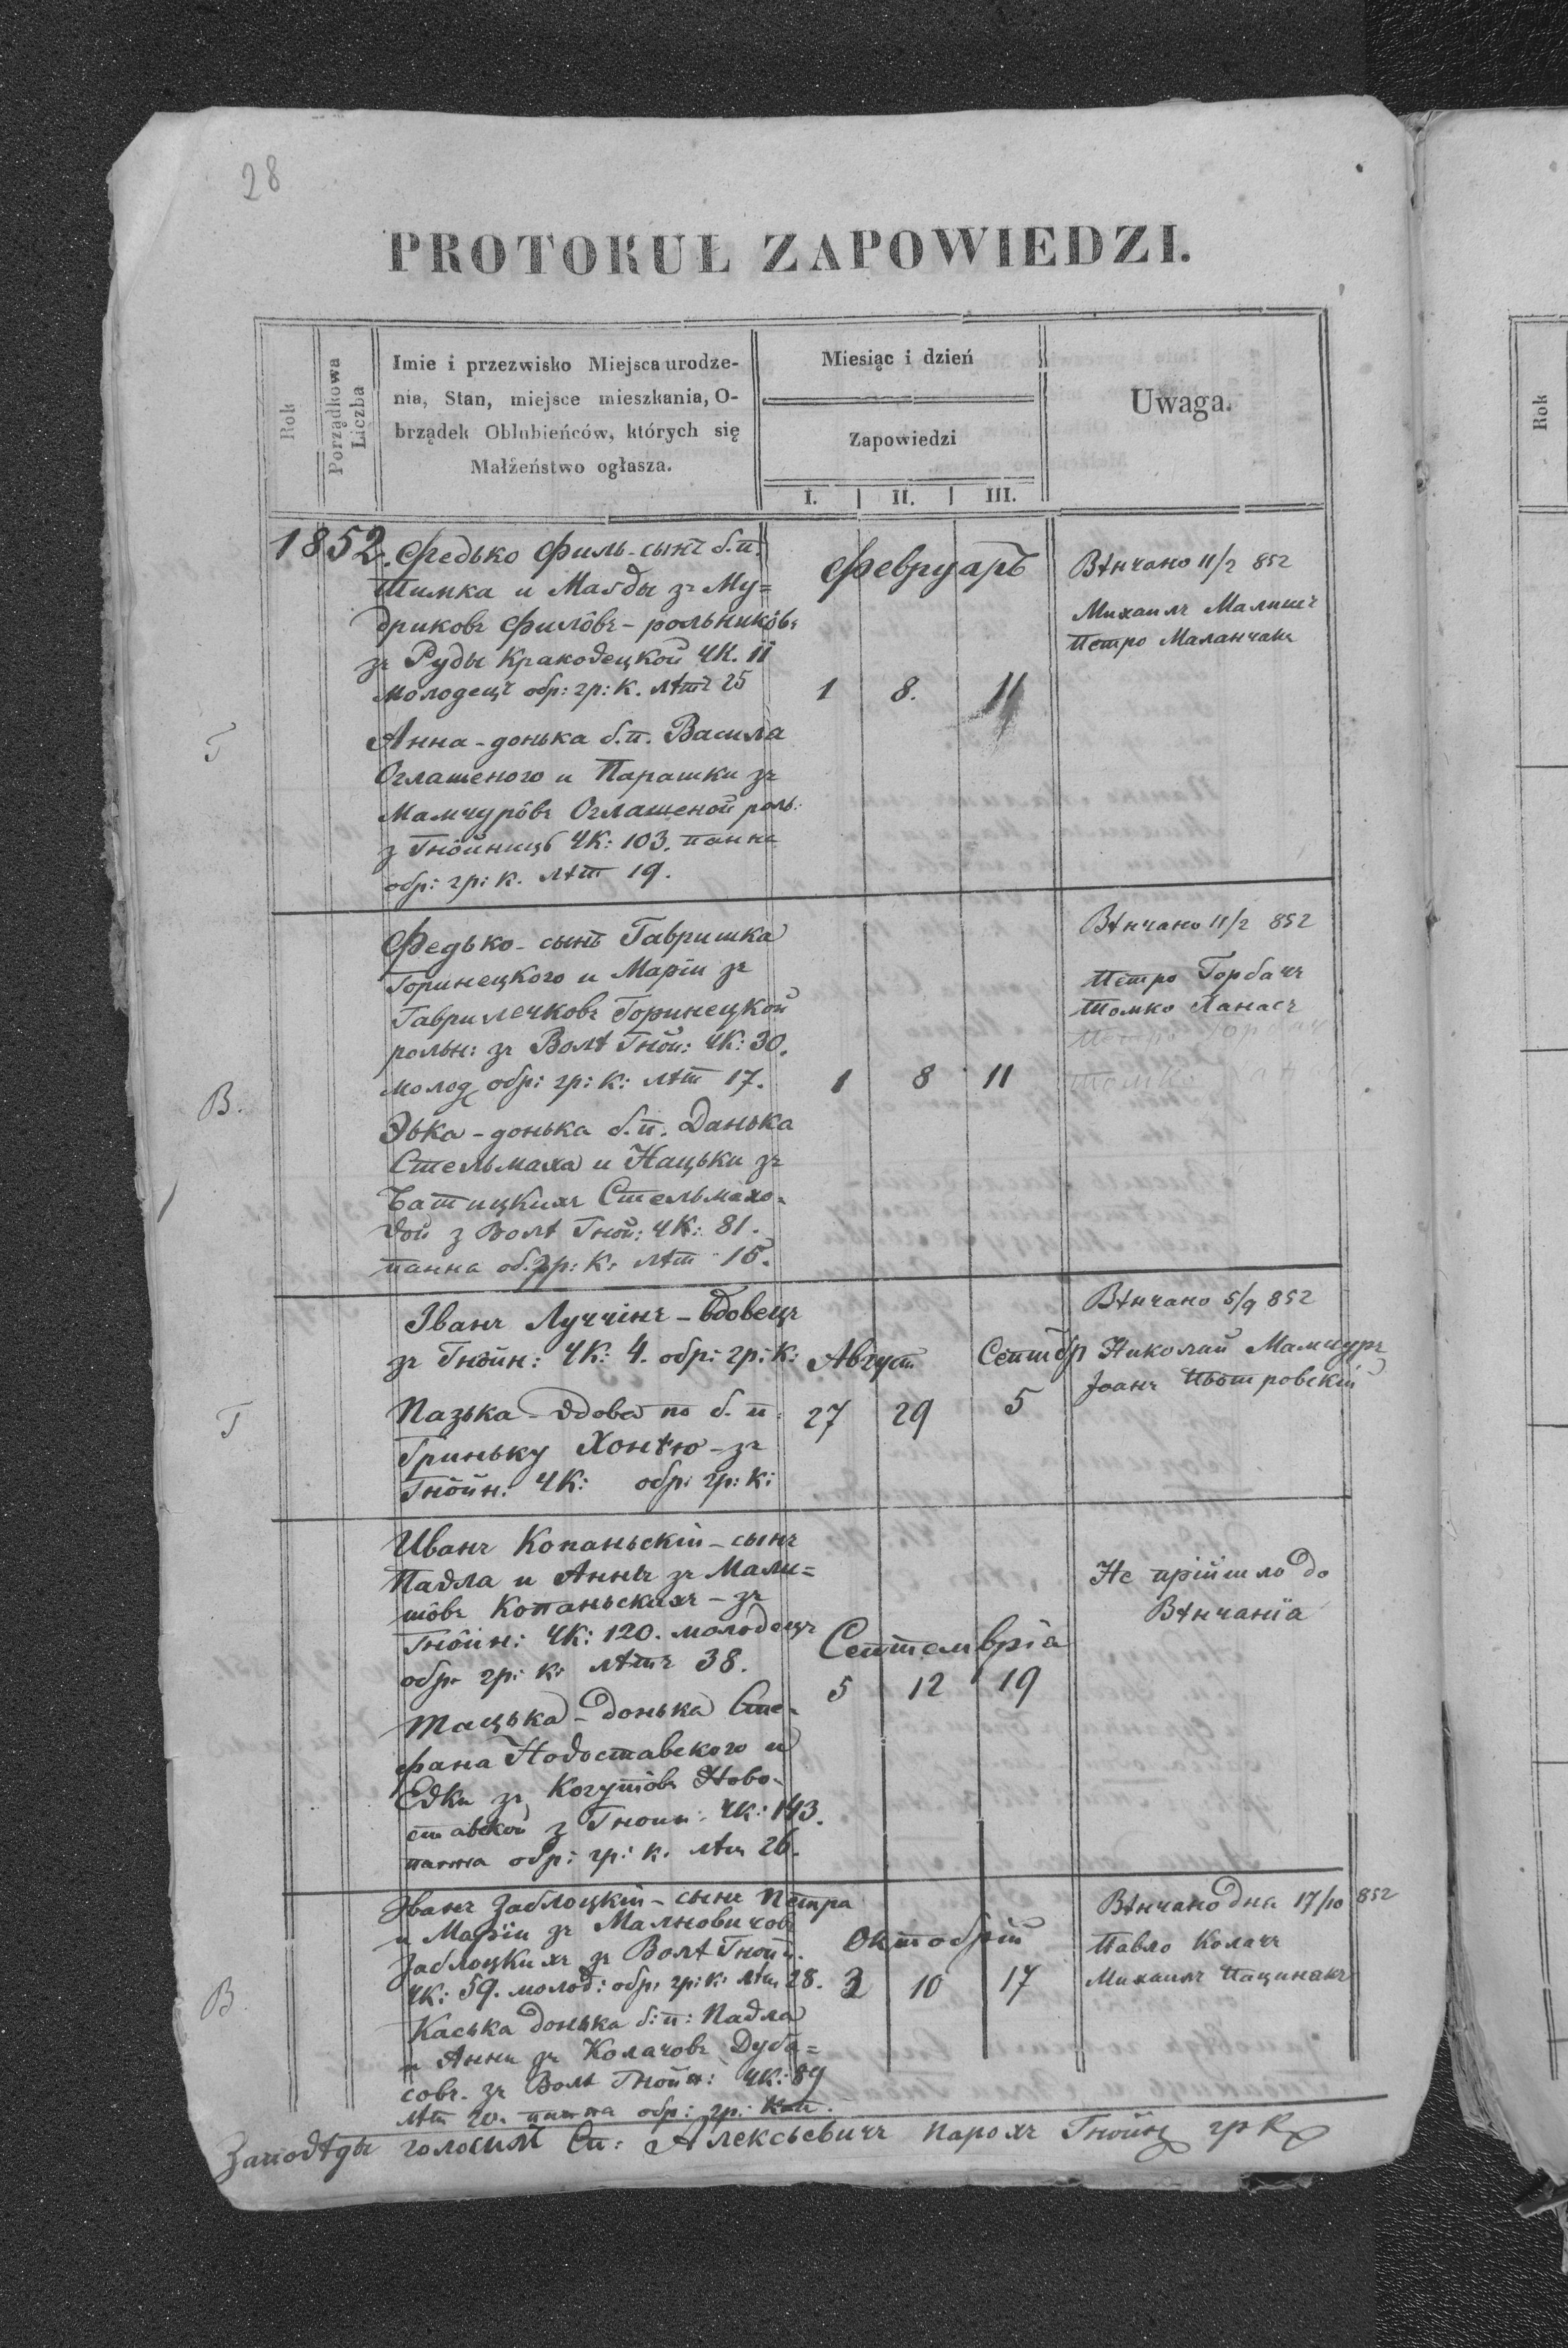 28
PROTOKUŁ ZAPOWIEDZI.
Rok
Porządkowa Liczba
Imie i przezwisko Miejsca urodze-
nia, Stan, miejsce mieszkania, O-
brządek Oblubieńców, których się
Małżeństwo ogłasza.
Miesiąc i dzień
Zapowiedzi
I. II. III.
Uwaga.
Rok
1852. Федько Филь-сынъ б.п.
Тимка и Магды зъ Му=
дриковъ Филôвъ - рольникôвъ
зъ Руды Краковецкои ЧК. 11
молодецъ обр: гр: к. лѣтъ 25
Анна - донька б.п. Васила
Оглашеного и Парашки зъ
Мамчурôвъ Оглашенои роль:
з Гнôйницѣ ЧК: 103. панна
обр: гр: к. лѣт 19.
Г
Февруаръ
1 8. 11
Вѣнчано 11/2 852
Михаилъ Малишъ
Петро Маланчакъ
Федько - сынъ Гавришка
Горинецкого и Маріи зъ
Гаврилечковъ Горинецкои
рольн: зъ Волѣ Гнôй: ЧК: 30.
молод обр: гр: к: лѣт 17.
Эвка - донька б.п. Данька
Стельмаха и Нацьки зъ
Батицкихъ Стельмахо=
вои з Волѣ Гнôй: ЧК: 81.
панна об. гр: к: лѣт 15.
В.
1 8 11
Вѣнчано 11/2 852
Петро Горбачъ
Томко Панасъ
Іванъ Луччінъ - вдовецъ
зъ Гнôйн: ЧК: 4. обр: гр: к:
Пазька - вдова по б. п.
Гриньку Хонѣю - зъ
Гнôйн: ЧК: обр: гр: к:
Г
Август Септбр
27 29 5
Вѣнчано 5/9 852
Николай Мамчуръ
Іоанъ Пьотровскій
Иванъ Копаньскій - сынъ
Павла и Анны зъ Мали=
шôвъ Копаньскихъ - зъ
Гнôйн: ЧК: 120. молодецъ
обр: гр: к: лѣтъ 38.
Тацька - донька Сте=
фана Новоставского и
Евки зъ Когутôвъ Ново=
ставскои з Гнойн: ЧК: 143.
панна обр: гр: к. лѣт 26.
Септемвріа
5 12 19
Не прійшло до
Вѣнчаніа
Іванъ Заблоцкій - сынъ Петра
и Маріи зъ Малновичовъ
Заблоцкихъ зъ Волѣ Гнойн.
ЧК: 59. молод: обр: гр: к: лѣт 28.
Каська донька б: п: Павла
и Анны зъ Колачовъ Дуба=
совъ. зъ Волѣ Гнойн: ЧК: 89
лѣт 20. панна обр: гр:
В.
Октобрій
3 10 17
Вѣнчано дня 17/10 852
Павло Колачъ
Михаилъ Пацинакъ
Заповѣды голосилъ Сп: Алексѣевичъ парохъ Гнойн гр к